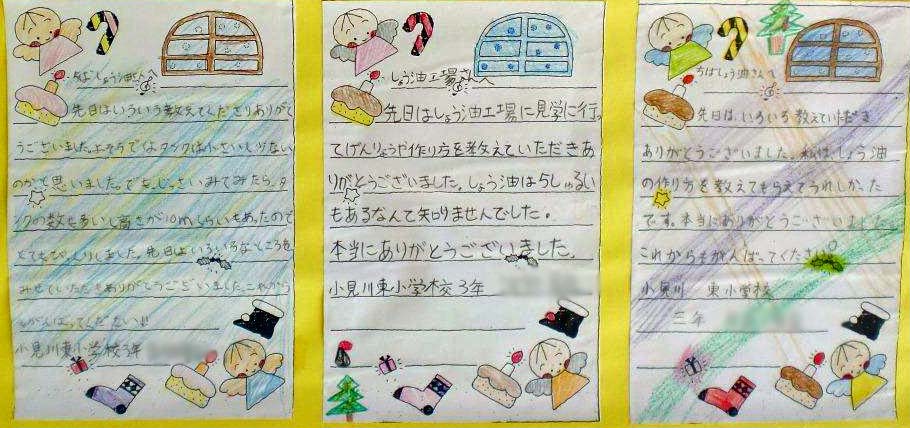 ちばしょう油さんへ
先日はいろいろ教えてくださりありがと
うございました。よそうではタンクは小さいし少ない
のかと思いました。でも、じっさいみてみたら、タ
ンクの数も多いし高さが10mぐらいもあったので
とてもびっくりしました。先日はいろいろなところを
みせていただきありがとうございました。これから
もがんばってください!!
小見川東小学校3年
しょう油工場さんへ
先日はしょう油工場に見学に行っ
てげんりょうや作り方を教えていただきあ
りがとうございました。しょう油は5しゅるい
もあるなんて知りませんでした。
本当にありがとうございました。
小見川東小学校3年
ちばしょう油さんへ
先日は、いろいろ教えていただき
ありがとうございました。私は、しょう油
の作り方を教えてもらえてうれしかった
です。本当にありがとうございました。
これからもがんばってください。
小見川 東小学校
三年